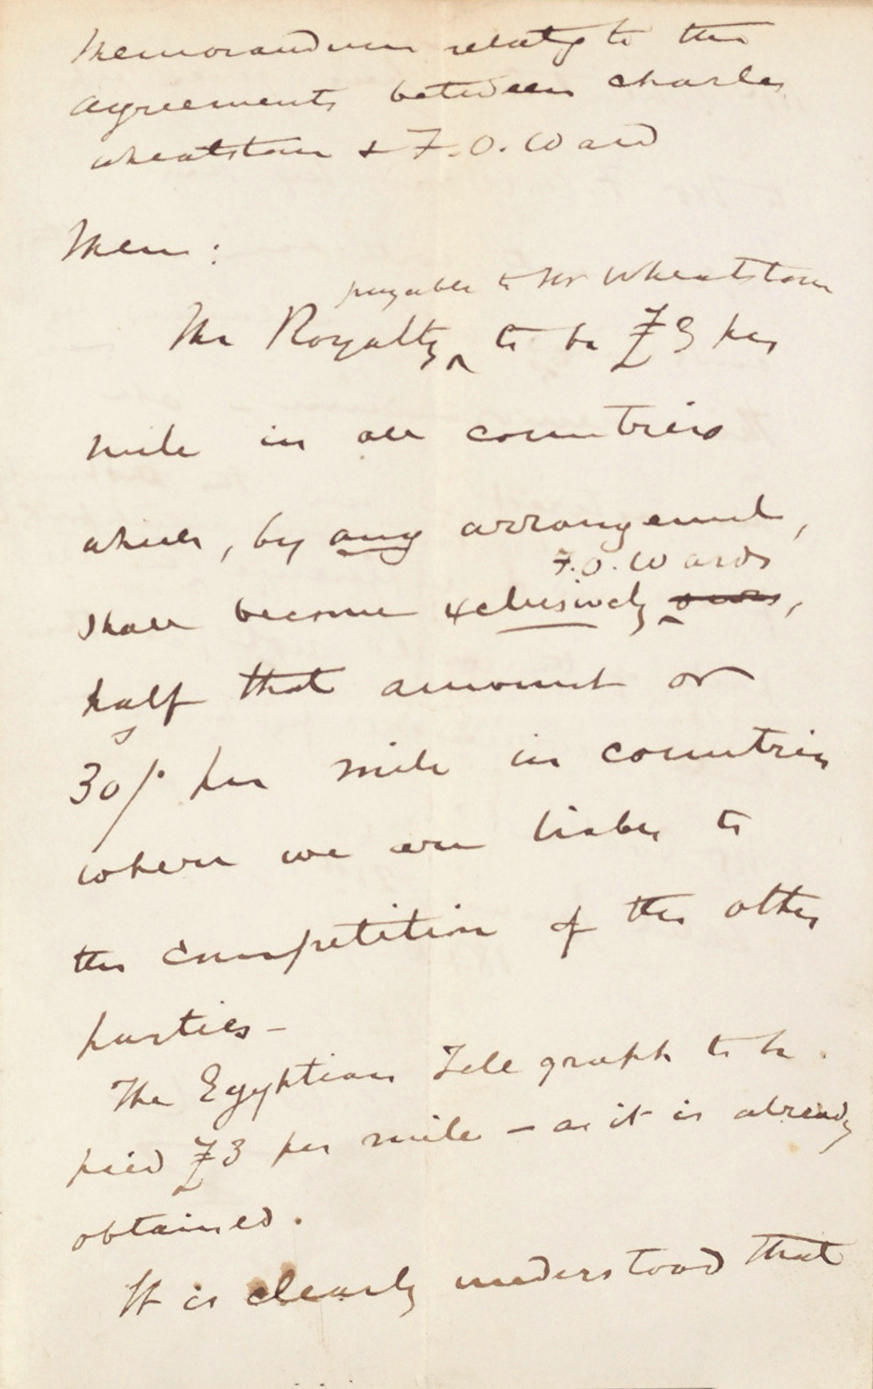 Memorandum relatg to the
agreements between Charles
Wheatstone & F. O. Ward
Mem :
payable to Mr Wheatstone
The Royalty ^ to be £3 per
mile in all countries
which, by any arrangement,
F. O. Wards
shall become exclusively ^ ours,
half that amount or
30s/. per mile in countries
where we are liable to
the competition of the other
parties -
The Egyptian Telegraph to be
paid £3 per mile – as it is already
obtained.
It is clearly understood that